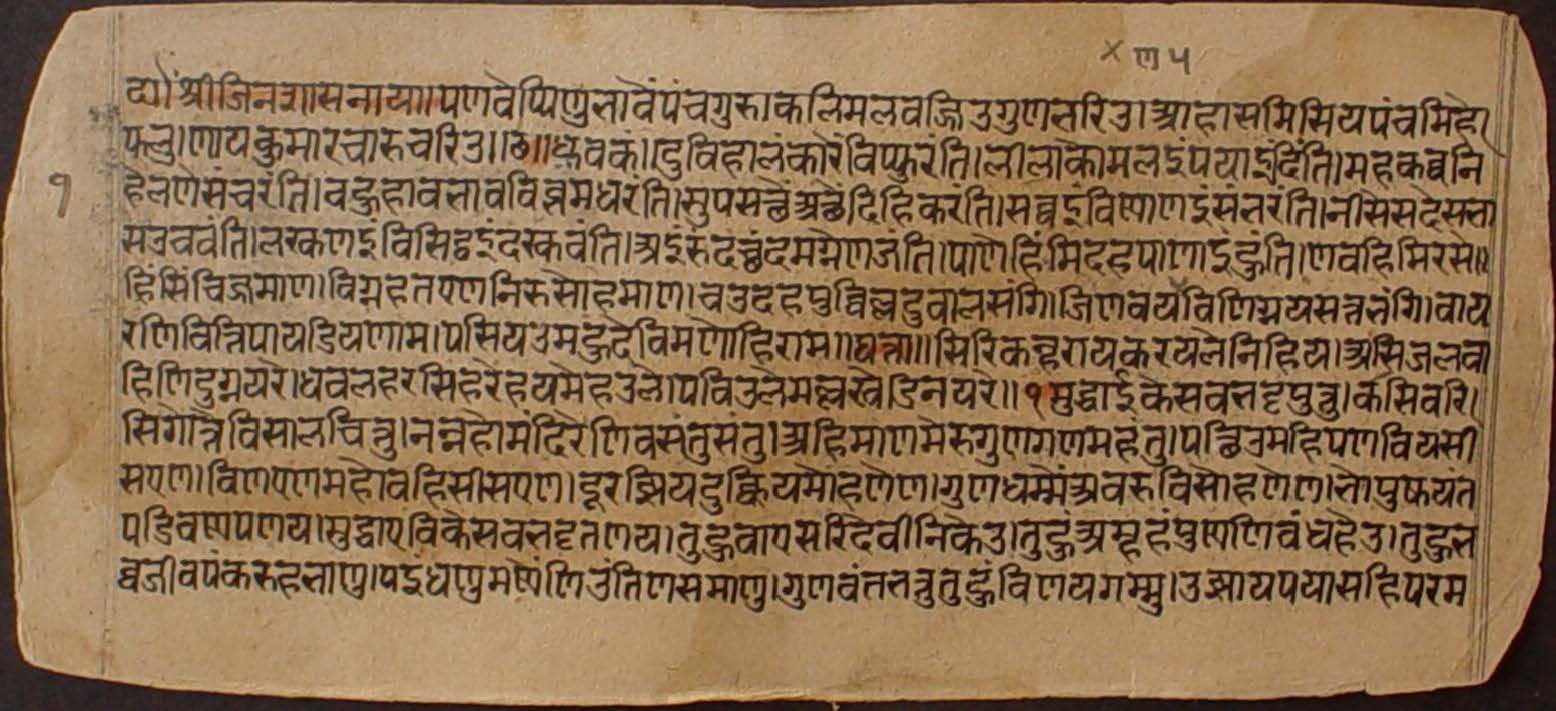 × ण ५
द्यों श्रीजिनशासनाय॥ पणवेप्पिणु भावें पंचगुरु। कलिमलवज्जिउ गुणभरिउ। आहासमि सियपंचमिहे।
फलु। णायकुमारचारुचरिउ। ।छ॥ ध्रुवकं। दुविहालंकारें विप्फुरंति। लीलाकोमलइं पयाइं दिंति। महकव्वनि
हेलणे संचरंति। बहुहावभावविब्भम धरंति। सुपसत्थें अत्थें दिहि करंति। सव्वइं विण्णाणइं संभरंति। नीसेसदेसभा
सउ चवंति। लक्खणइं विसिट्ठइं दक्खवंति। अइरुंदछंदमग्गेण जंति। पाणेहिंमि दह पाणाइं हुंति। णवहिमि रसे॥
१
हिं संचिज्जमाण। विग्गहतएण निरु सोहमाण। चउदहपुव्विल्ल दुवालसंगि। जिणवयविणिग्गयसत्तभंगि। वाय
रणवित्तिपायडियणाम। पसियउ महु देवि मणोहिराम॥ घत्ता॥ सिरिकन्हरायकरयलनिहिय। असिजलवा
हिणिदुग्गयरे। धवलहरसिहरहयमेहउले। पविउलमन्नखेडिनयरे॥ १ मुद्धाईकेसवभट्टपुत्तु। कासवरि।
सिगोत्तें विसालचित्तु। नन्नहो मंदिरे णिवसंतु संतु। अहिमाणमेरु गुणगणमहंतु। पत्थिउ महिपणवियसी
सएण। विणएण महोवहिसीसएण। दूरुज्झियदुक्कियमोहणेण। गुणधम्में अवरु वि सोहणेण। भो पुप्फयंत
पडिवण्णपणय। मुद्धाएवि केसवभट्टतणय। तुहु वाएसरिदेवीनिकेउ। तुहुं अम्हहं पुण्णणिबंधहेउ। तुहु भ
व्वजीवपंकरुहभाणु। पइं धणु मण्णिउ तिणसमाणु। गुणवंतभत्तु तुहुं विणयगम्मु। उज्झायपयासहि परम